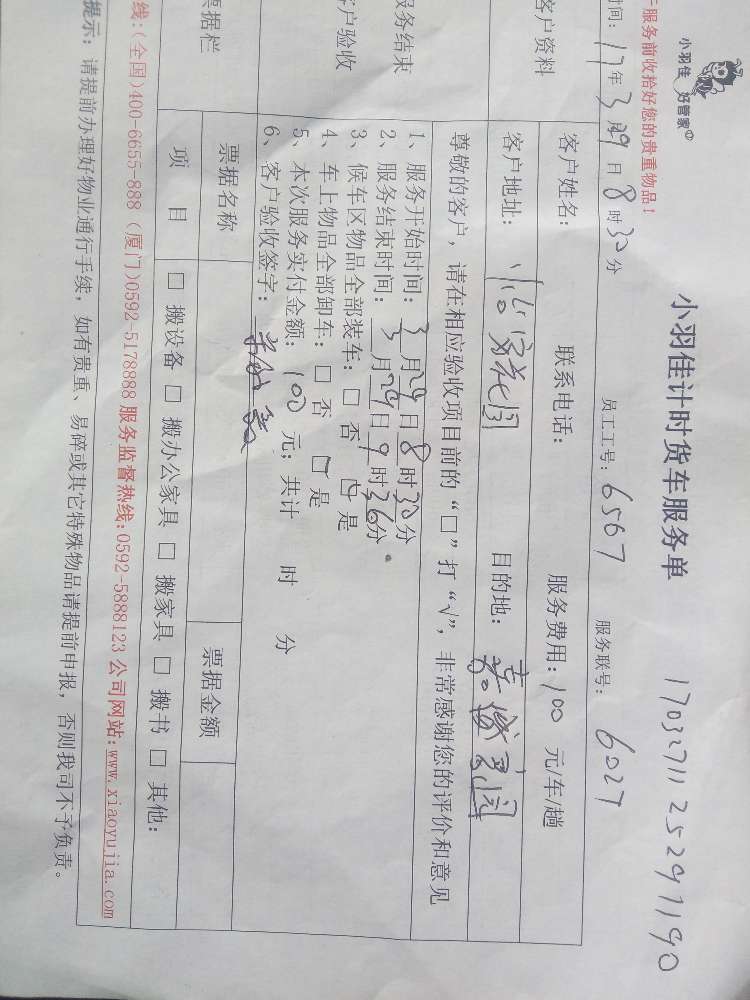 小羽佳 好管家
服务前收拾好您的贵重物品!
小羽佳计时货车服务单
17032711252971190
时间: 17年3月29日8时30分 员工工号: 6567 服务联号: 6027
客户资料
客户姓名: 联系电话: 服务费用: 100 元/车/趟
客户地址: 花园 目的地:
服务结束
客户验收
尊敬的客户,请在相应验收项目前的“□”打“√”,非常感谢您的评价和意见
1、服务开始时间: 3月29日8时30分
2、服务结束时间: 3月29日9时36分
3、候车区物品全部装车: □ 否 □ 是
4、车上物品全部卸车: □ 否 □ 是
5、本次服务实付金额: 100 元; 共计 时 分
6、客户验收签字:
票据栏
票据名称 票据金额
项 目 □ 搬设备 □ 搬办公家具 □ 搬家具 □ 搬书 □ 其他:
线:(全国)400-6655-888 (厦门)0592-5178888 服务监督热线:0592-5888123 公司网站:www.xiaoyujia.com
提示: 请提前办理好物业通行手续, 如有贵重、易碎或其它特殊物品请提前申报, 否则我司不予负责。